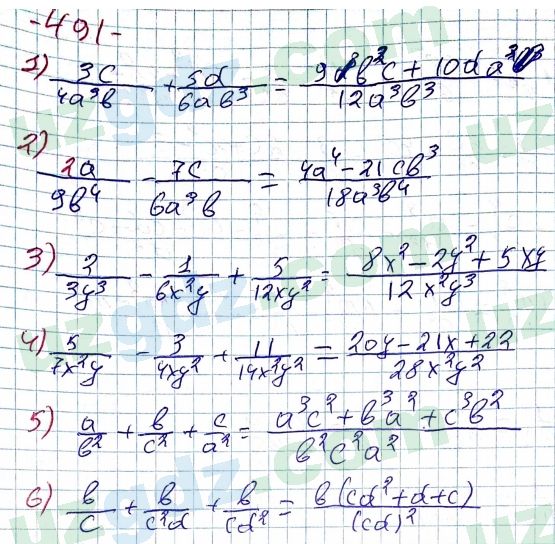 -491-
1) 3c/(4a³b) + 5d/(6ab³) = (9b²c + 10da²)/(12a³b³)
2) 2a/(9b⁴) - 7c/(6a³b) = (4a⁴ - 21cb³)/(18a³b⁴)
3) 2/(3y³) - 1/(6x²y) + 5/(12xy²) = (8x² - 2y² + 5xy)/(12x²y³)
4) 5/(7x²y) - 3/(4xy²) + 11/(14x²y²) = (20y - 21x + 22)/(28x²y²)
5) a/b² + b/c² + c/a² = (a³c² + b³a² + c³b²)/(b²c²a²)
6) b/c + b/(c²d) + b/(cd²) = b(cd² + d + c)/(cd)²
uzgdz.com